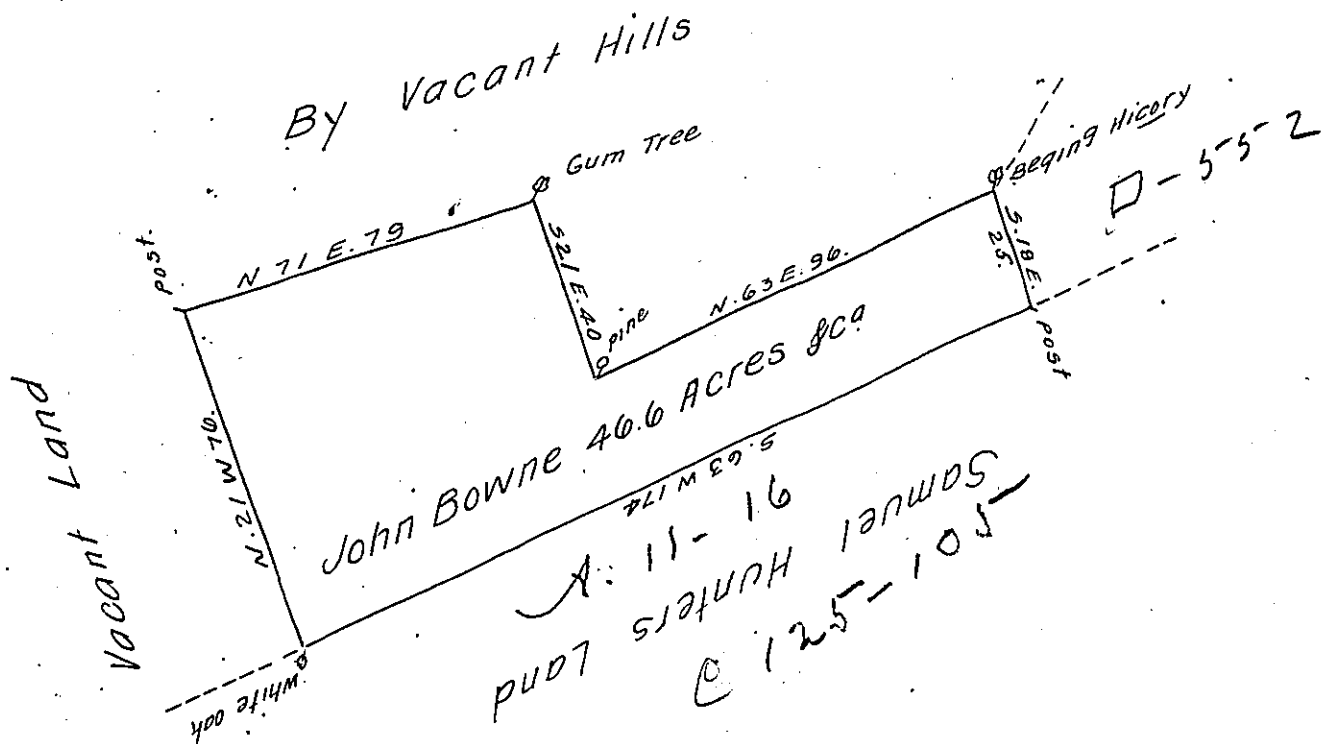 By Vacant Hills
Gum Tree
Begining Hicory
D-552
post.
N 71 E. 79
S 21 E. 40
pine
N. 63 E. 96.
S. 18 E.
25.
post
Vacant Land
N. 21 W 76.
John Bowne 46.6 Acres &ca
S. 63 W 174
A. 11-16
Samuel Hunters Land
C 125-105
white oak